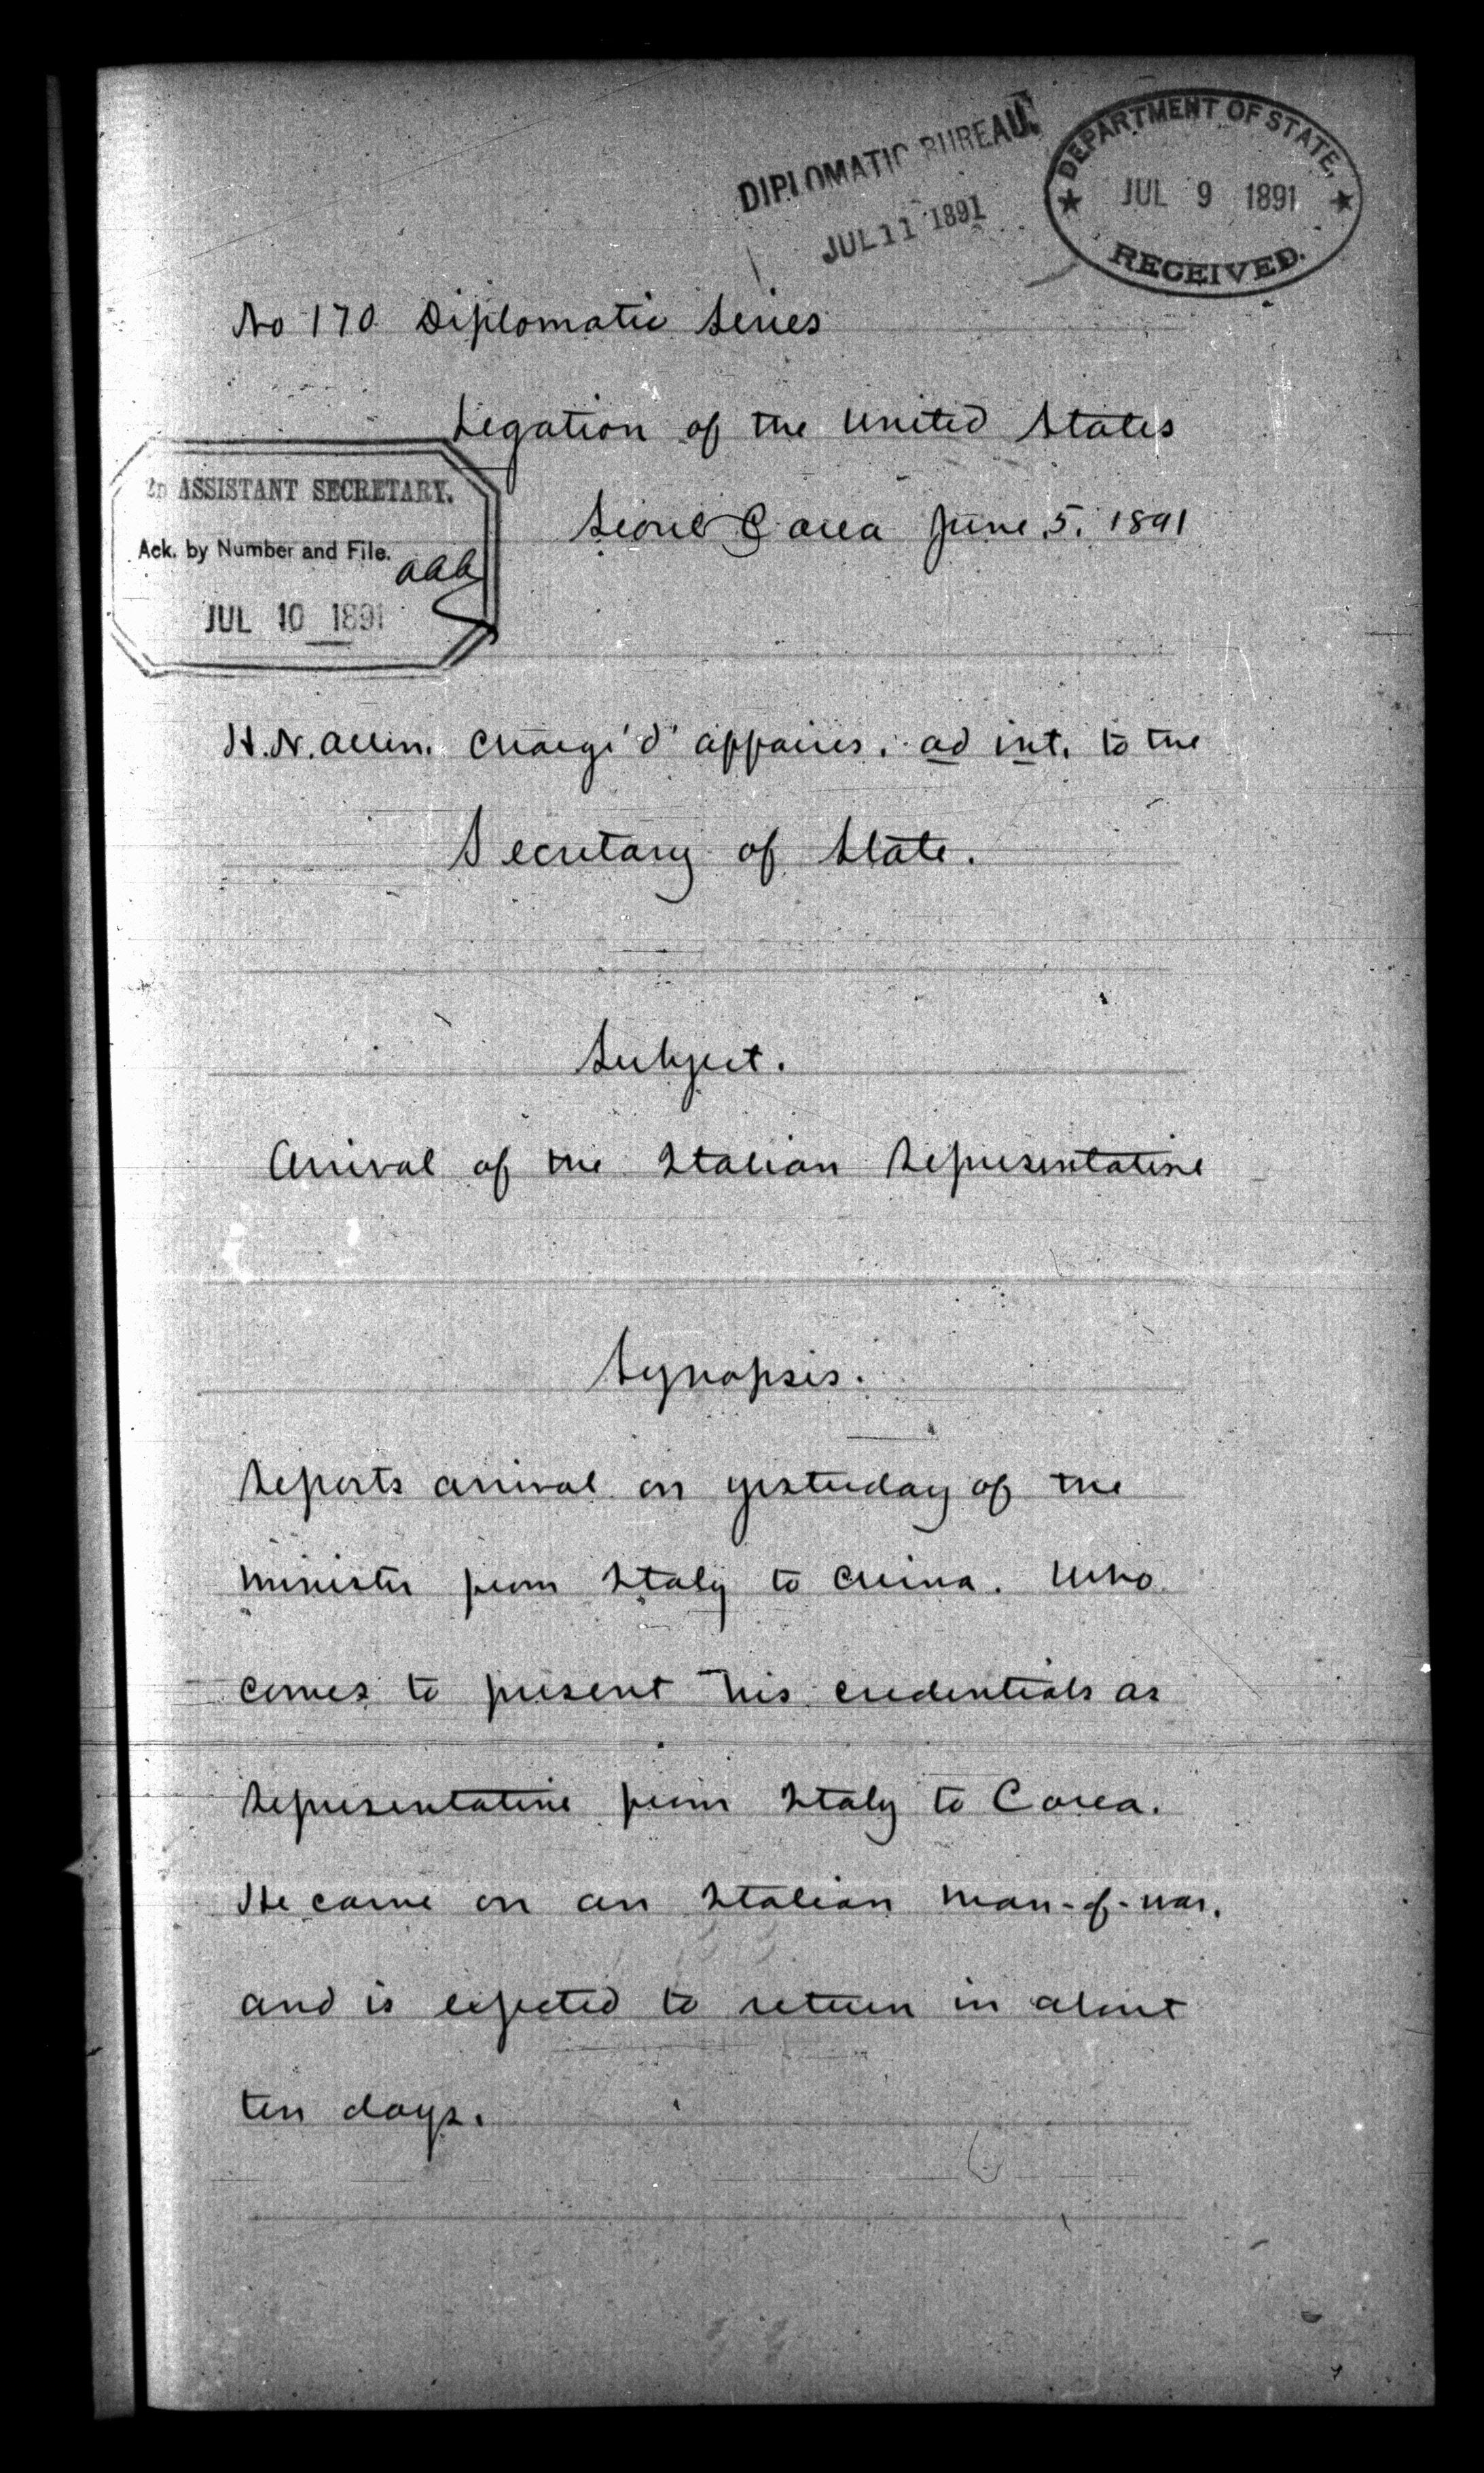 DIPLOMATIC BUREAU.
JUL 11 1891
DEPARTMENT OF STATE,
JUL 9 1891
RECEIVED.
No 170 Diplomatic Series
Legation of the United States
2D ASSISTANT SECRETARY.
Seoul Corea June 5, 1891
Ack. by Number and File.
JUL 10 1891
H. N. Allen. Chargé d' affaires. ad int. to the
Secretary of State.
Subject.
Arrival of the Italian Representative
Synopsis.
Reports arrival on yesterday of the
minister from Italy to China. Who
comes to present his credentials as
Representative from Italy to Corea.
He came on an Italian man-of-war.
and is expected to return in about
ten days.